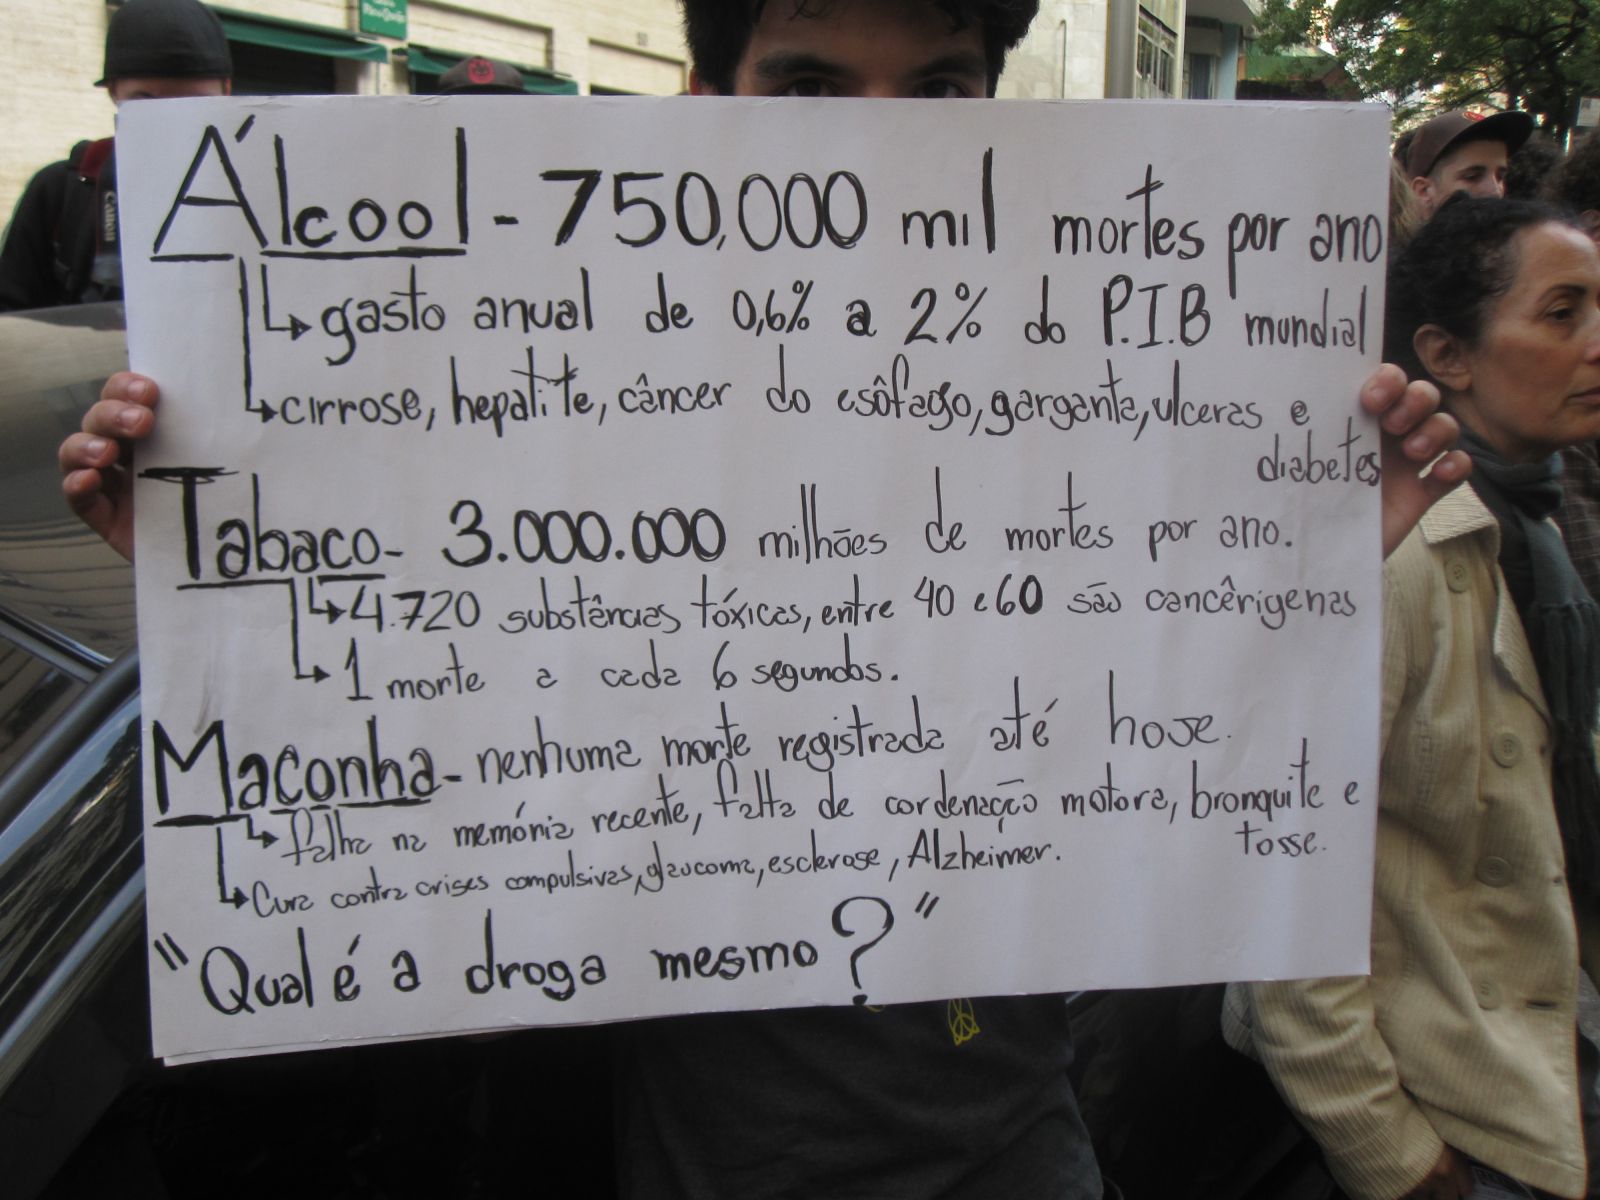 Álcool - 750,000 mil mortes por ano
gasto anual de 0,6% a 2% do P.I.B mundial
cirrose, hepatite, câncer do esôfago, garganta, ulceras e
diabetes
Tabaco - 3.000.000 milhões de mortes por ano.
4.720 substâncias tóxicas, entre 40 e 60 são cancêrigenas
1 morte a cada 6 segundos.
Maconha - nenhuma morte registrada até hoje.
falha na memória recente, falta de cordenação motora, bronquite e
tosse.
Cura contra crises compulsivas, glaucoma, esclerose, Alzheimer.
"Qual é a droga mesmo?"